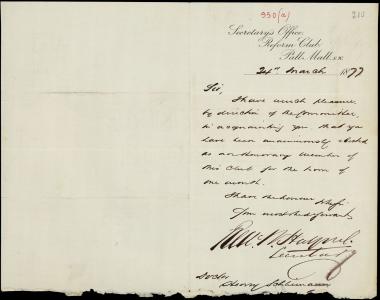 550(a)
210
Secretary's Office,
Reform Club,
Pall Mall. S.W.
24th March 1877
Sir,
I have much pleasure
by direction of the Committee,
in acquainting you, that you
have been unanimously elected
as an Honorary Member of
this Club for the term of
one month.
I have the honour to be Sir
Your most obed servant
Secretary
Doctor
Henry Schliemann